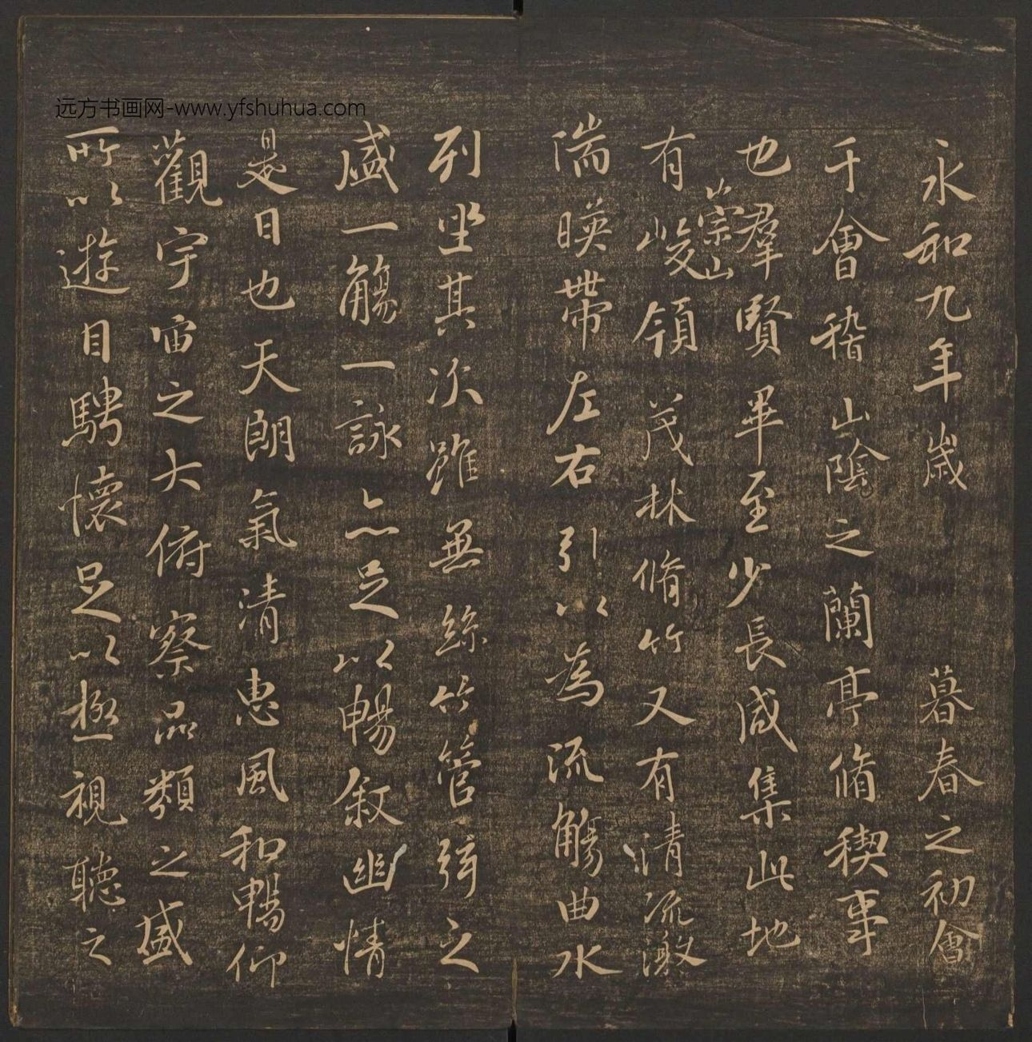 远方书画网-www.yfshuhua.com
永和九年歲暮春之初會
于會稽山陰之蘭亭脩稧事
也羣賢畢至少長咸集此地
有崇山峻領茂林脩竹又有清流激
湍暎帶左右引以為流觴曲水
列坐其次雖無絲竹管弦之
盛一觴一詠亦足以暢敘幽情
是日也天朗氣清惠風和暢仰
觀宇宙之大俯察品類之盛
所以遊目騁懷足以極視聽之